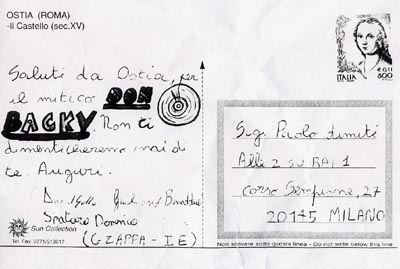 OSTIA (ROMA)
-Il Castello (sec.XV)
Saluti da Ostia, per
il mitico DON
BACKY. Non ti
dimenticheremo mai di
te. Auguri.
Spataro Domenico
(GZAPPA-IE)
Sun Collection
Tel. Fax. 0771/513617
ITALIA
800
Sig. Paolo Limiti
Alle 2 SU RAI 1
corso Sempione, 27
20145 MILANO
Non scrivere sotto questa linea - Do not write below this line